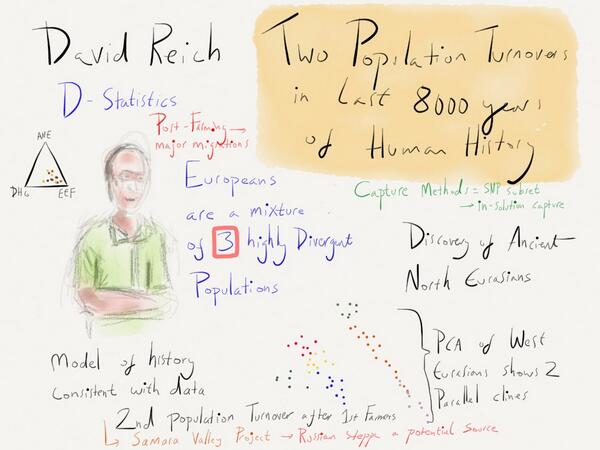 David Reich
Two Population Turnovers
in Last 8000 years
of Human History
D-Statistics
Post-Farming →
major migrations
ANE
DHG
EEF
Europeans
are a mixture
of 3 highly Divergent
Populations
Capture Methods = SNP subset
→ in-solution capture
Discovery of Ancient
North Eurasians
PCA of West
Eurasians shows 2
Parallel clines
Model of history
Consistent with data
2nd population Turnover after 1st Farmers
Samara Valley Project → Russian Steppe a potential Source